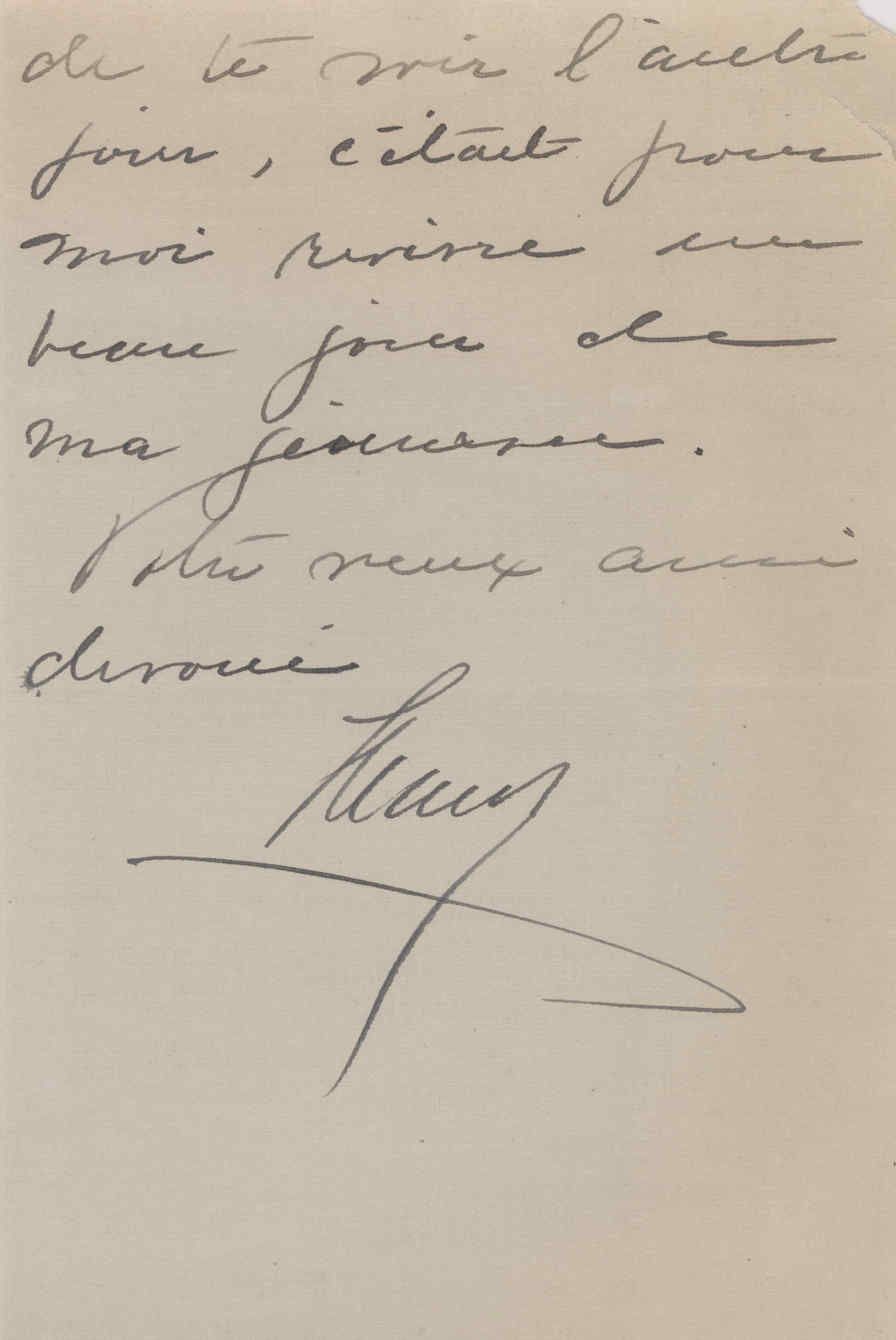 de te voir l'autre
jour, c'était pour
moi revivre un
beau jour de
ma jeunesse.
Votre vieux ami
dévoué